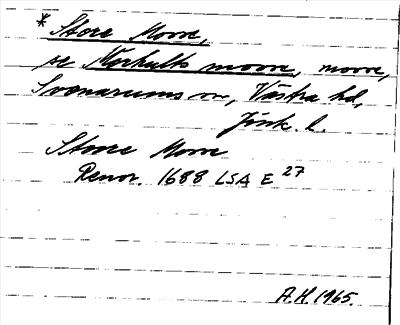 * Store Mosse,
se Kärhults mosse, mosse,
Svenarums sn, Västra hd,
Jönk. l.
Store Mosse
Renov. 1688 LSA E 27
A.H. 1965.